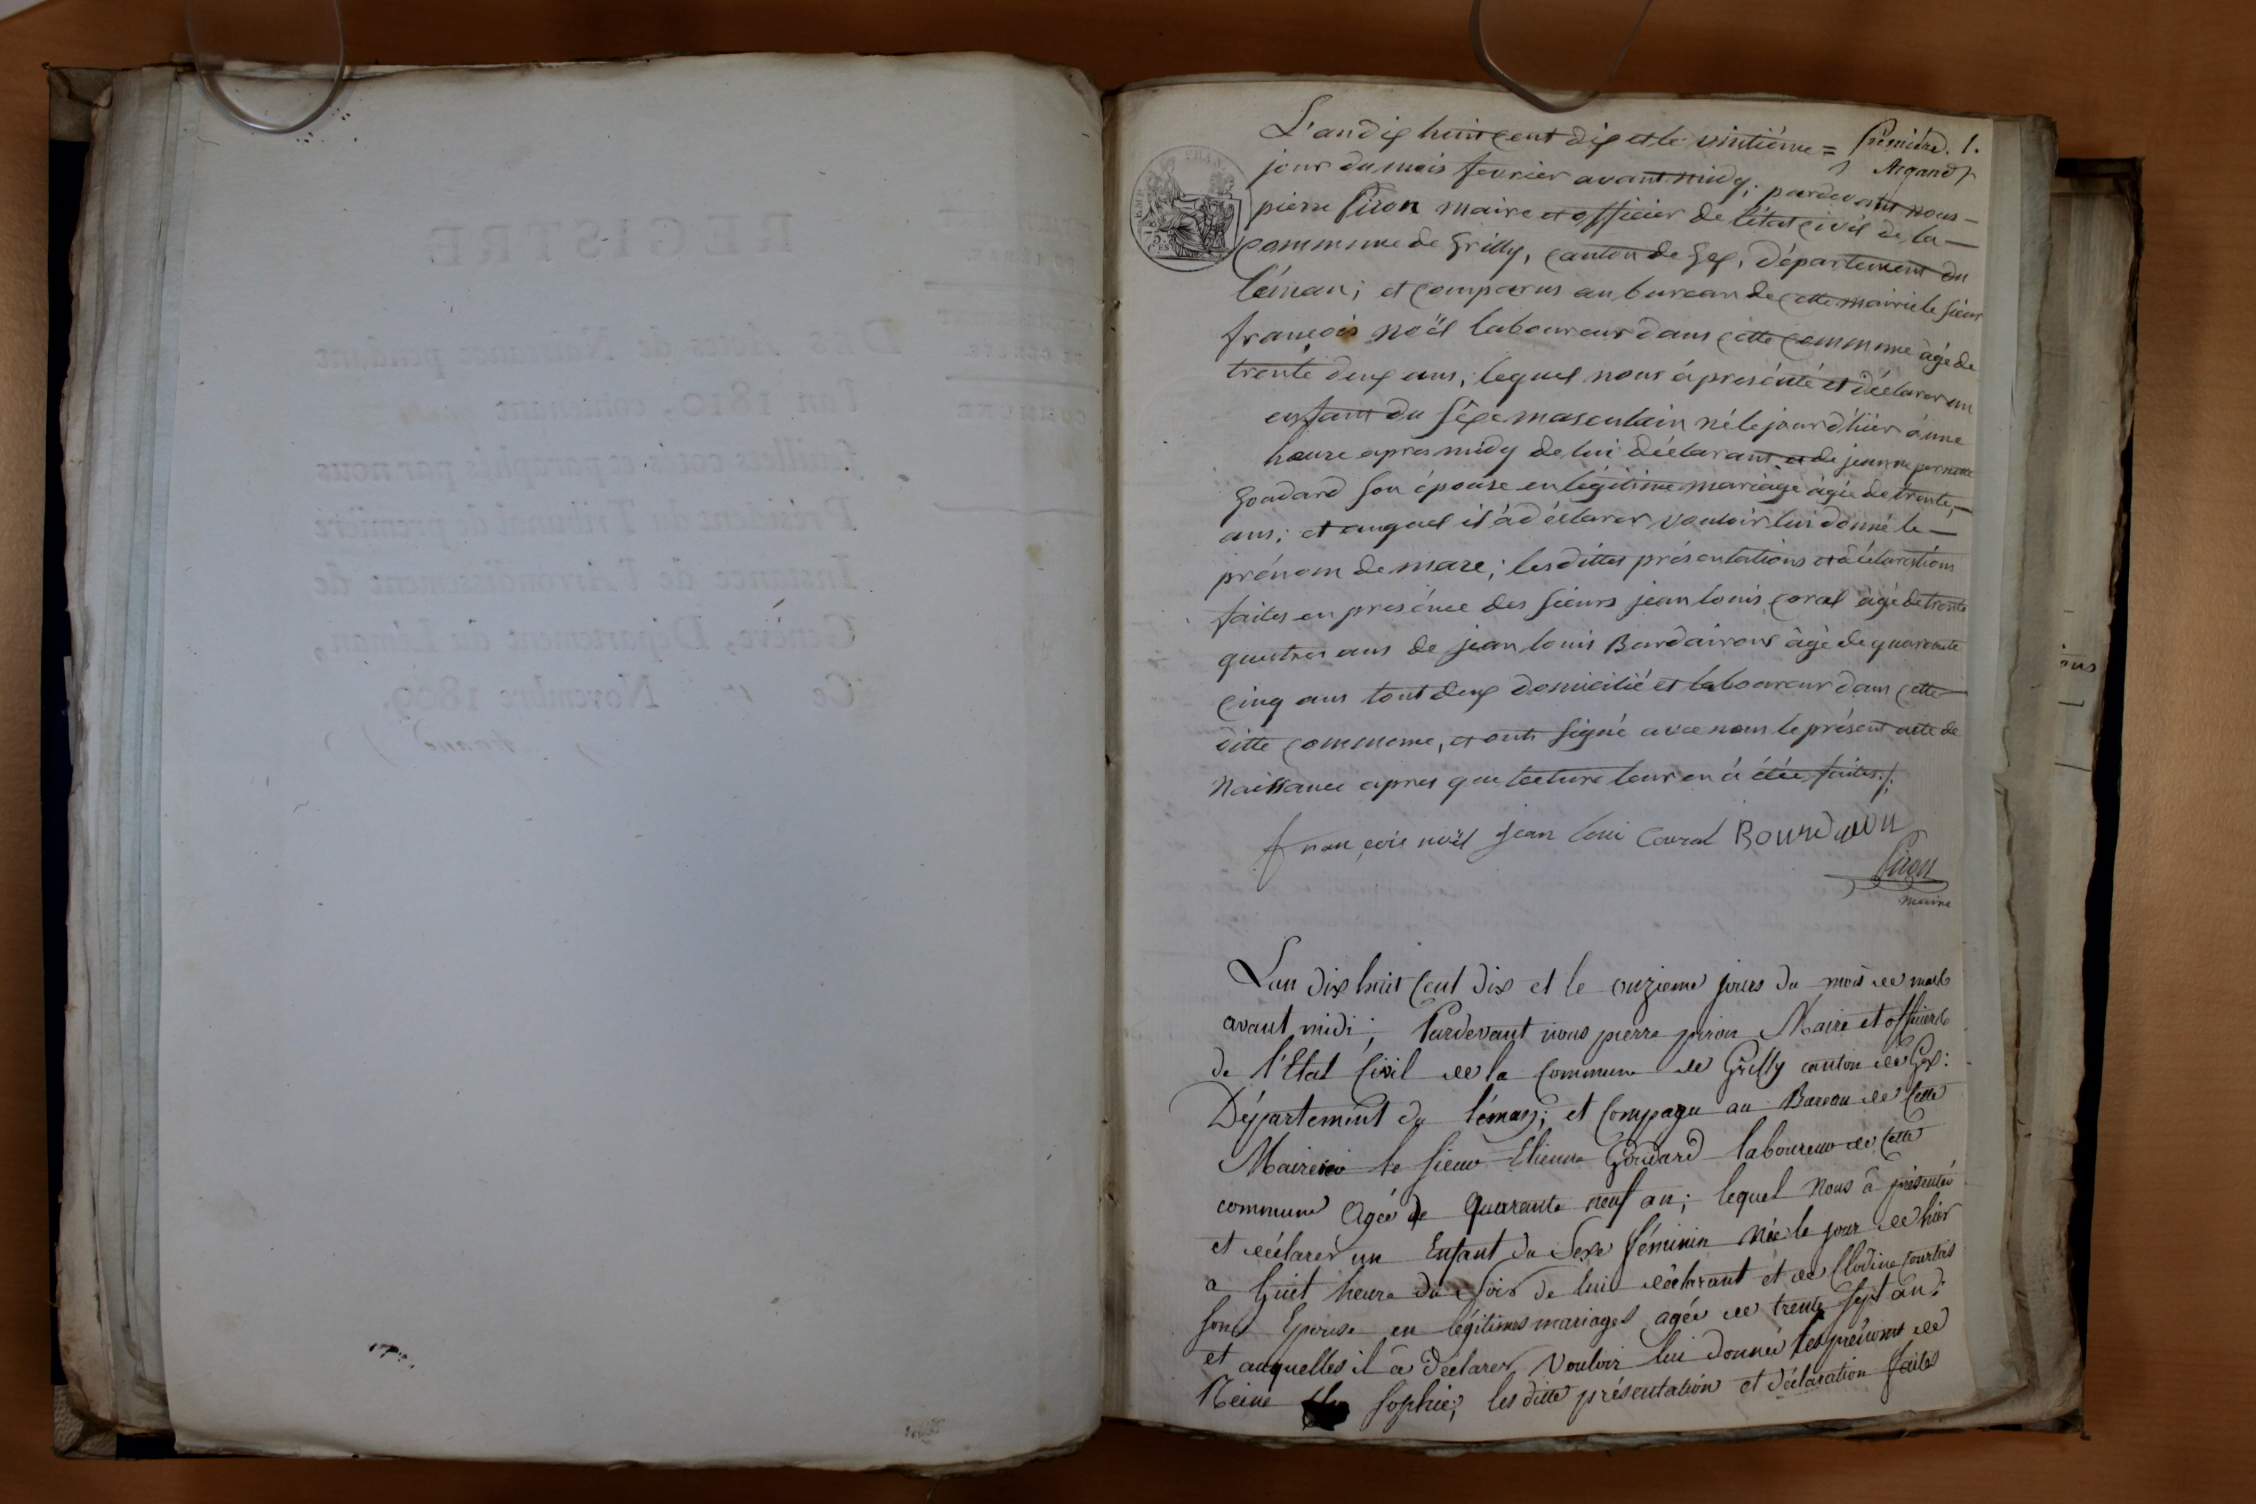 L'an dix huit cent dix et le vintième =
Première. 1.
Argand
jour du mois fevrier avant midy; pardevant nous
pierre Piron maire et officier de l'état civil de la
Commune de Grilly, canton de Gex, département du
léman; et comparus au bureau de cette mairie le sieur
françois noël laboureur dans cette commune âgé de
trente deux ans, lequel nous à présenté et déclarer un
enfant du sêxe masculain né le jour d'hier à une
heure apres midy de lui déclarant et de jeanne pernette
Goudard son épouse en légitime mariage âgée de trente,
ans; et auquel il à déclarer vouloir lui donné le
prénom de marc; lesdittes présentations et déclarations
faites en présence des sieurs jean louis coral âgé de trente
quatres ans de jean louis Bardairons âgé de quarante
cinq ans tout deux domicilié et laboureur dans cette
ditte commune, et onts signé avec nous le présent acte de
Naissance apres que lecture leur en à étée faites./.
françois noël jean loui Coural Bourdairon
Piron
maire
L'an dix huit Cent dix et le onzieme jours du mois de mars
avant midi; Pardevant nous pierre piron Maire et officier
de l'Etat Civil de la Commune de Grilly canton de Gex:
Département du léman; et Comparu au Bureau de Cette
Maire le sieur Etienne Goudard laboureur de Cette
commune Agée de Quarante neuf an; lequel Nous â présentée
et déclarer un Enfant du Sexe féminin Née le jour de hier
a huit heure du soir de lui déclarant et de Clodine Courtois
son Epouse en légitimes mariages agée de trente sept an:
et auquelles il â déclarer Vouloir lui donnée les prénoms de
Reine Sophie; les ditte présentation et déclaration faites
REGISTRE
DES Actes de Naissance pendant
l'an 1810, contenant
feuillets cotés et paraphés par nous
Président du Tribunal de première
Instance de l'Arrondissement de
Genève, Département du Léman,
Ce Novembre 1809.
Argand
COMMUNE